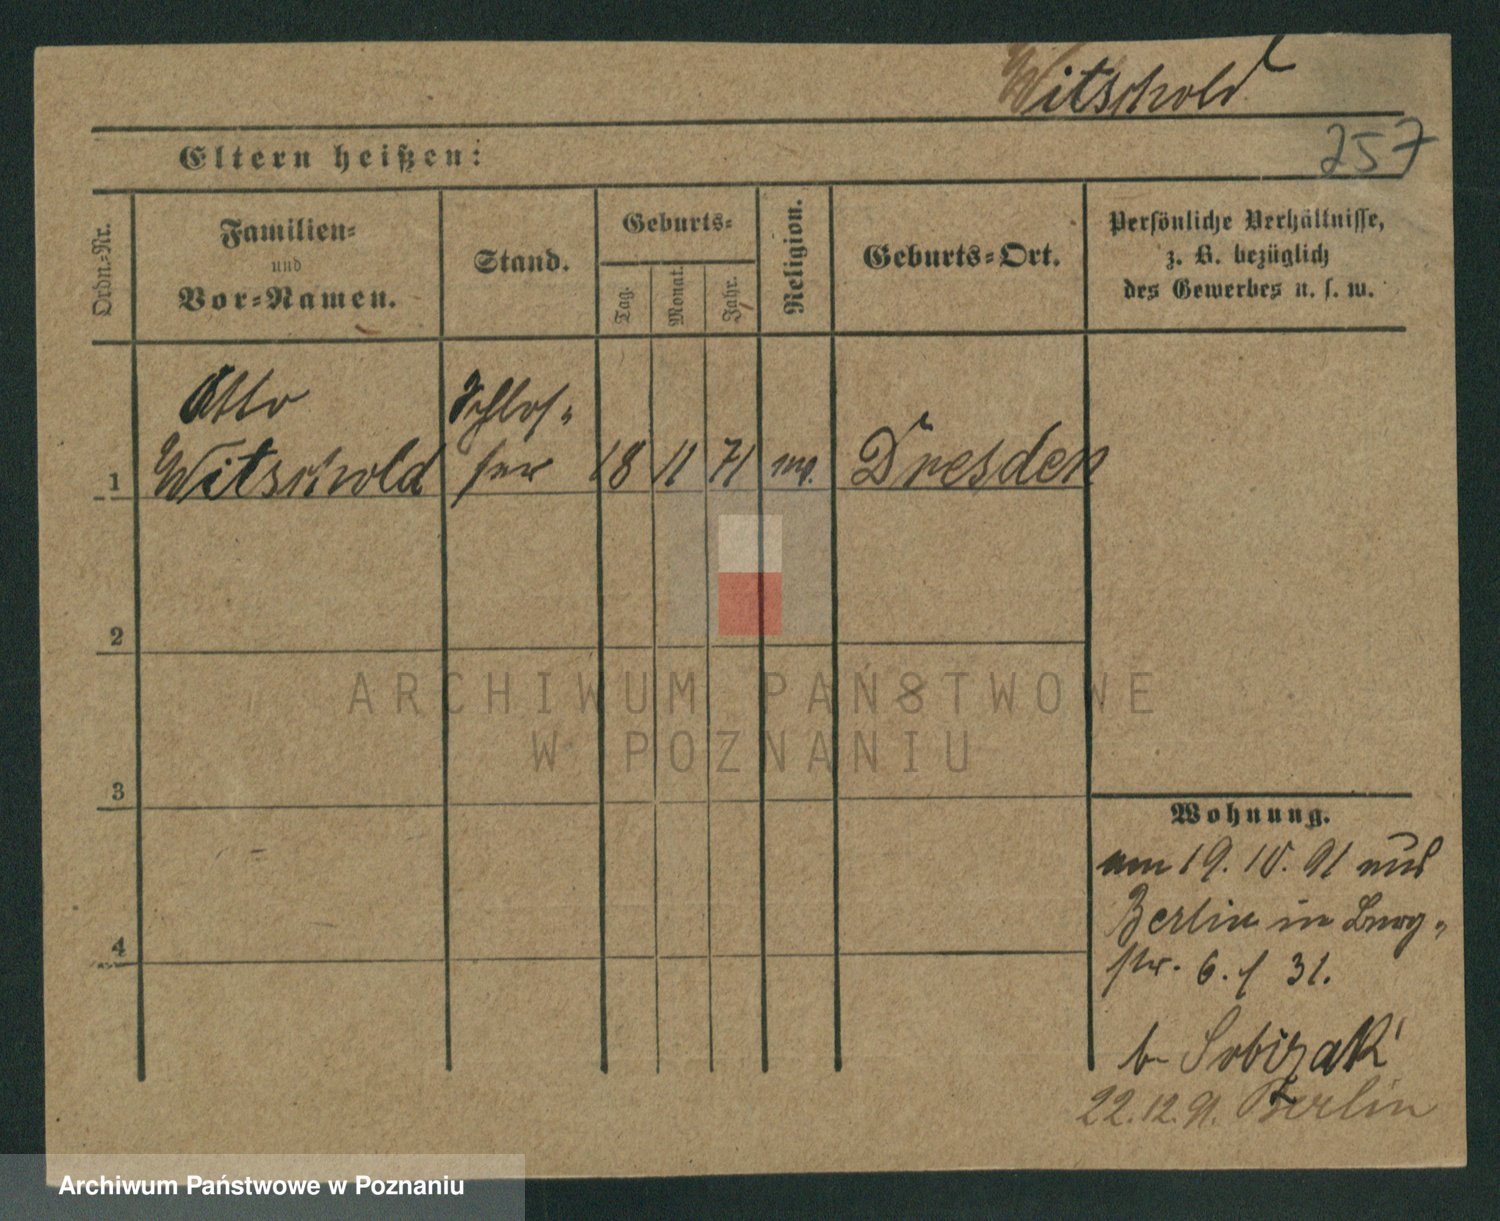 Witschold
257
Eltern heißen:
Ordn.-Nr.
Familien-
und
Vor-Namen.
Stand.
Geburts-
Tag.
Monat.
Jahr.
Religion.
Geburts-Ort.
Persönliche Verhältnisse,
z. B. bezüglich
des Gewerbes u. s. w.
Otto
Witschold
Schlos-
ser
1
18
11
71
ev.
Dresden
2
3
4
Wohnung.
am 19. 10. 91 aus
Berlin in Burg-
str. 6. f 31.
b
22.12.91. Berlin
ARCHIWUM PAŃSTWOWE
W POZNANIU
Archiwum Państwowe w Poznaniu